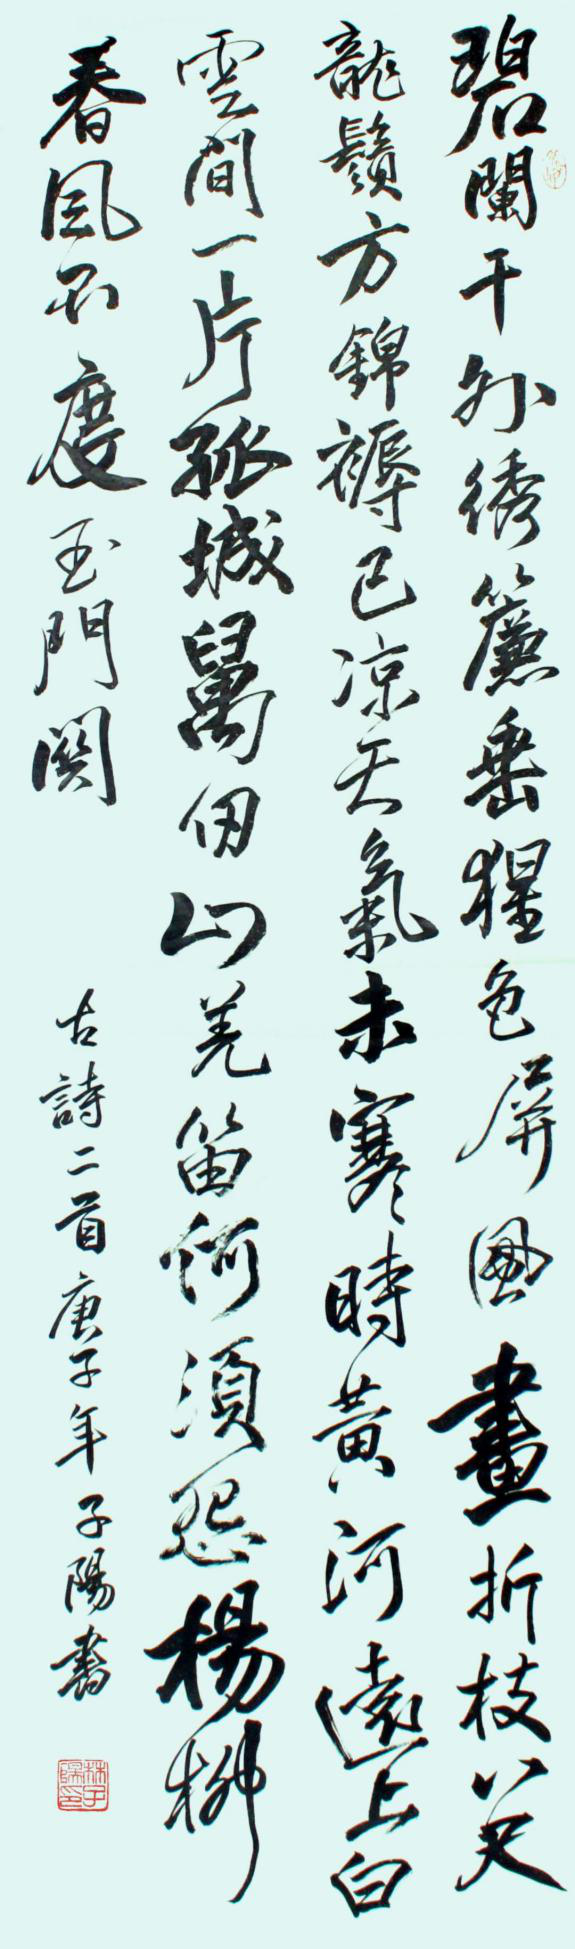 碧闌干外綉簾垂猩色屏風畫折枝八尺
龍鬚方錦褥已凉天氣未寒時黃河遠上白
雲間一片孤城萬仞山羌笛何須怨楊柳
春風不度玉門関
古詩二首庚子年子陽書
林子陽印